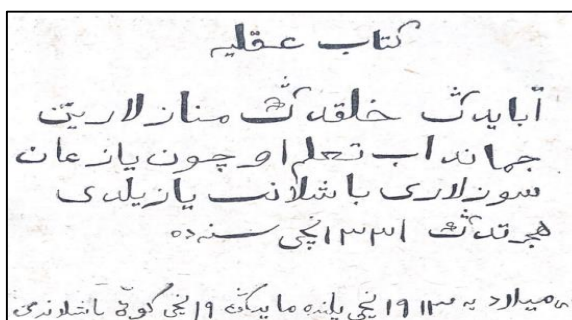 كتاب عقليه
آبايدڭ خلقدڭ مناز لارين
جمانداب تعلم اوچون ياز عان
سوزلارى باشلانت يازيلدى
هجرتدڭ ١٣٣١ نچى سنه ده
ميلاديه ١٩١٣ نچى يلنده مايدڭ ١٩ نچى كونى باشلاندى